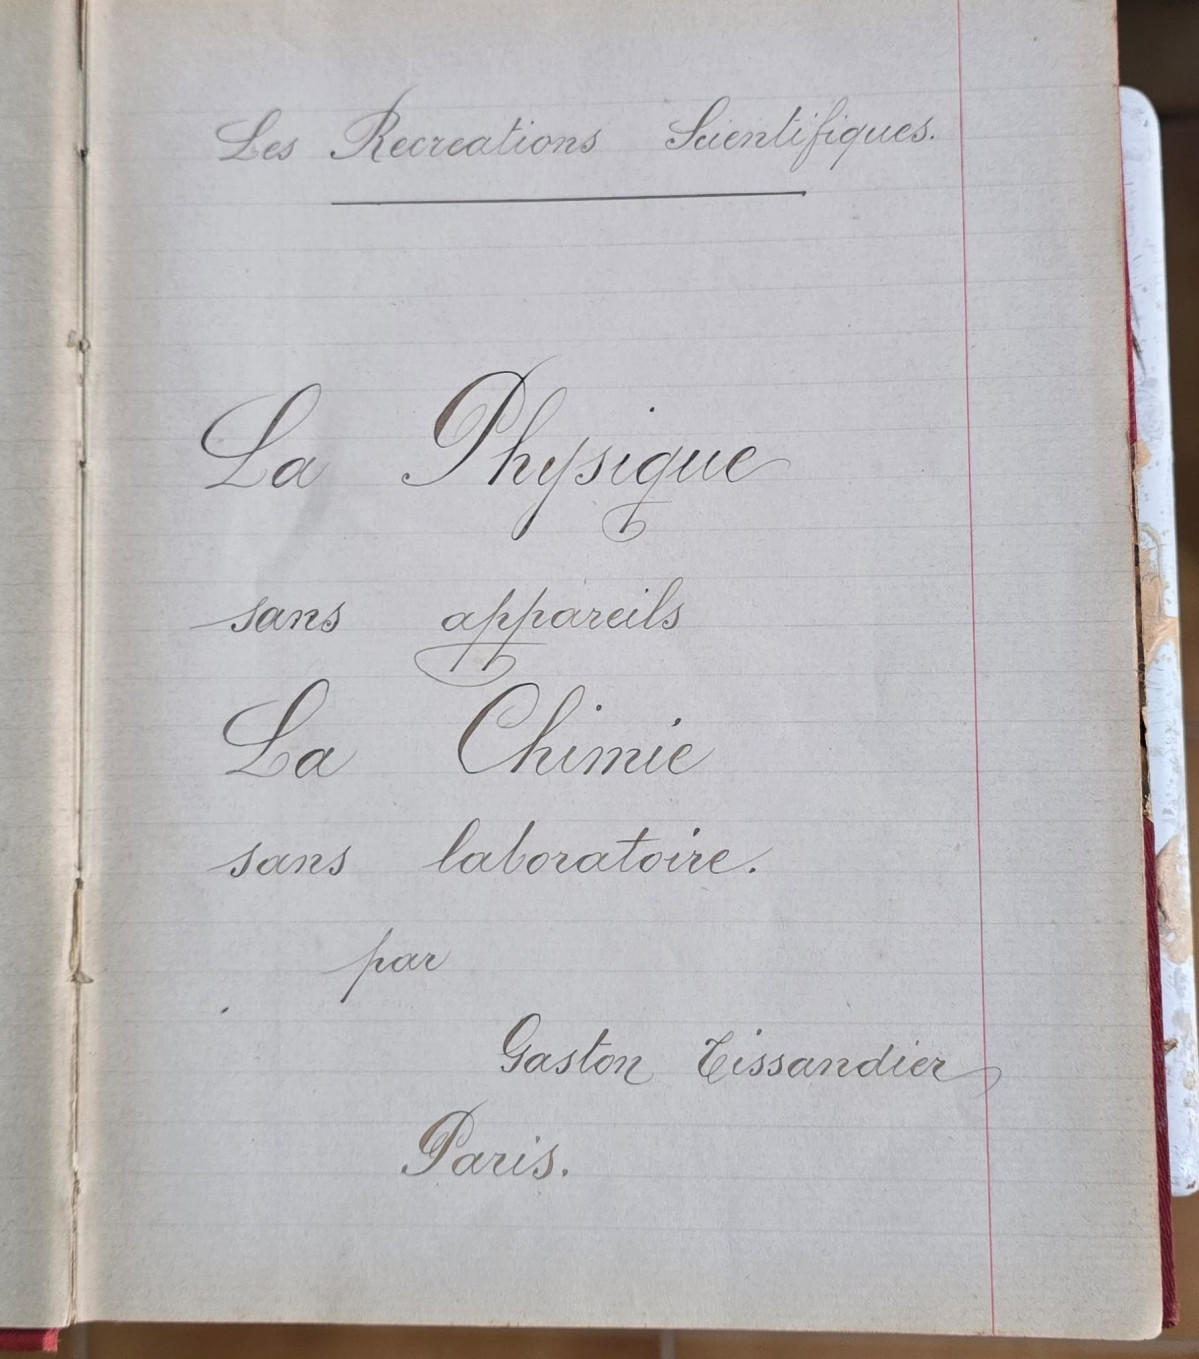 Les Recreations Scientifiques.
La Physique
sans appareils
La Chimie
sans laboratoire.
par
Gaston Tissandier
Paris.